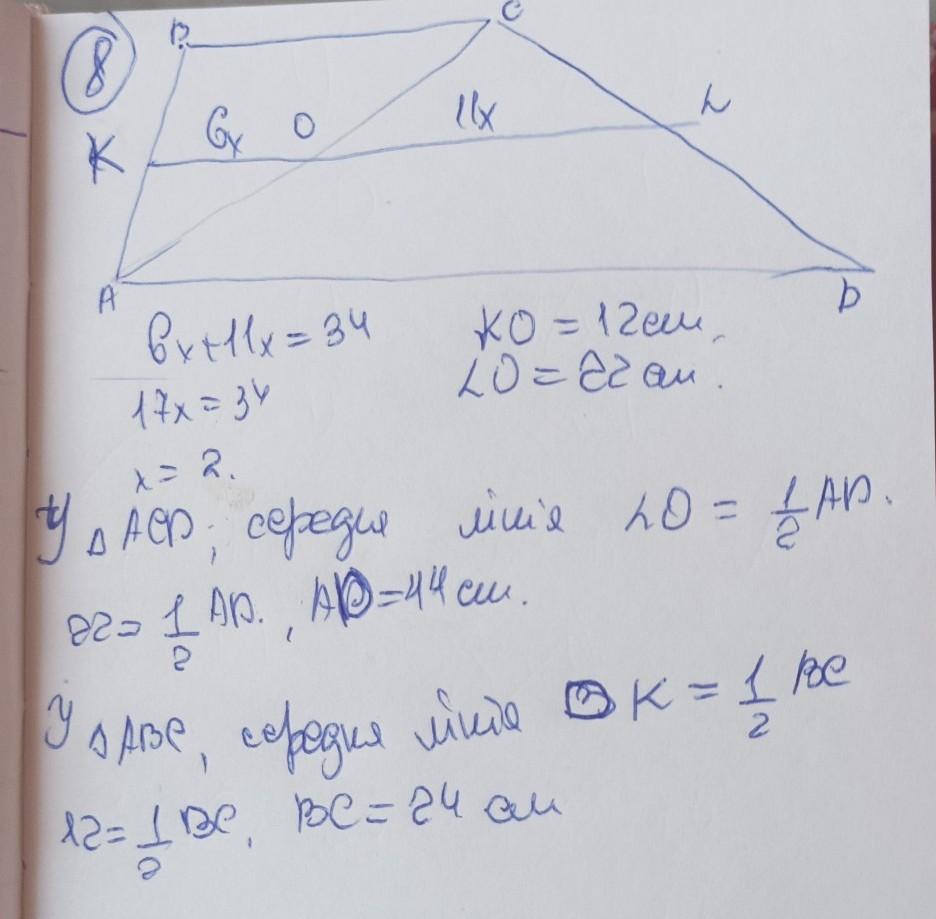 8
B C
K 6x O 11x L
A D
6x+11x=34 KO=12см.
17x=34 LO=22см.
x=2.
У △ACD, середня лінія LO = 1/2 AD.
22=1/2 AD., AD=44см.
У △ABC, середня лінія OK = 1/2 BC
12=1/2 BC, BC=24 см